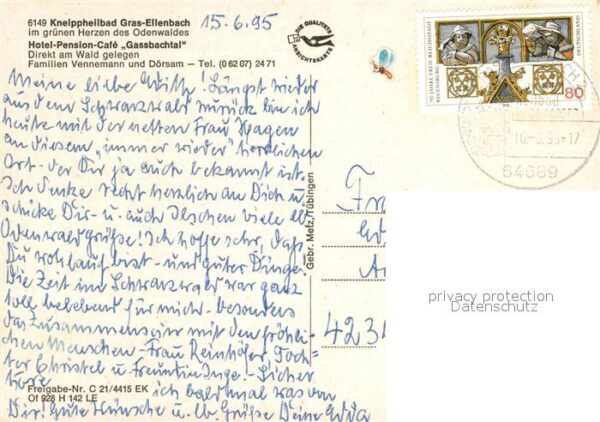 6149 Kneippheilbad Gras-Ellenbach
im grünen Herzen des Odenwaldes
Hotel-Pension-Café „Gassbachtal"
Direkt am Wald gelegen
Familien Vennemann und Dörsam — Tel. (0 62 07) 24 71
15.6.95
DIE QUALITÄTS
ANSICHTSKARTE
750 JAHRE FREIE REICHSSTADT
REGENSBURG
DEUTSCHLAND
80
64689
Meine liebe! Längst wieder
aus dem Schwarzwald zurück bin ich
heute mit der netten Frau Hagen
an diesem „immer wieder" herrlichen
Ort - der Dir ja auch bekannt ist.
Ich denke recht herzlich an Dich u.
schicke Dir - u. auch Ilschen viele lb.
Odenwaldgrüße! Ich hoffe sehr, daß
Du wohlauf bist - und guter Dinge.
Die Zeit im Schwarzwald war ganz
toll belebend für mich - besonders
das Zusammensein mit den fröhli-
chen Menschen - Frau Reinhöfer, Toch-
ter Christel u. Freundin Inge. - Sicher
höre ich bald mal was von
Dir! Gute Wünsche u. lb. Grüße Deine
Gebr. Metz, Tübingen
Fr
423
privacy protection
Datenschutz
Freigabe-Nr. C 21/4415 EK
Of 928 H 142 LE